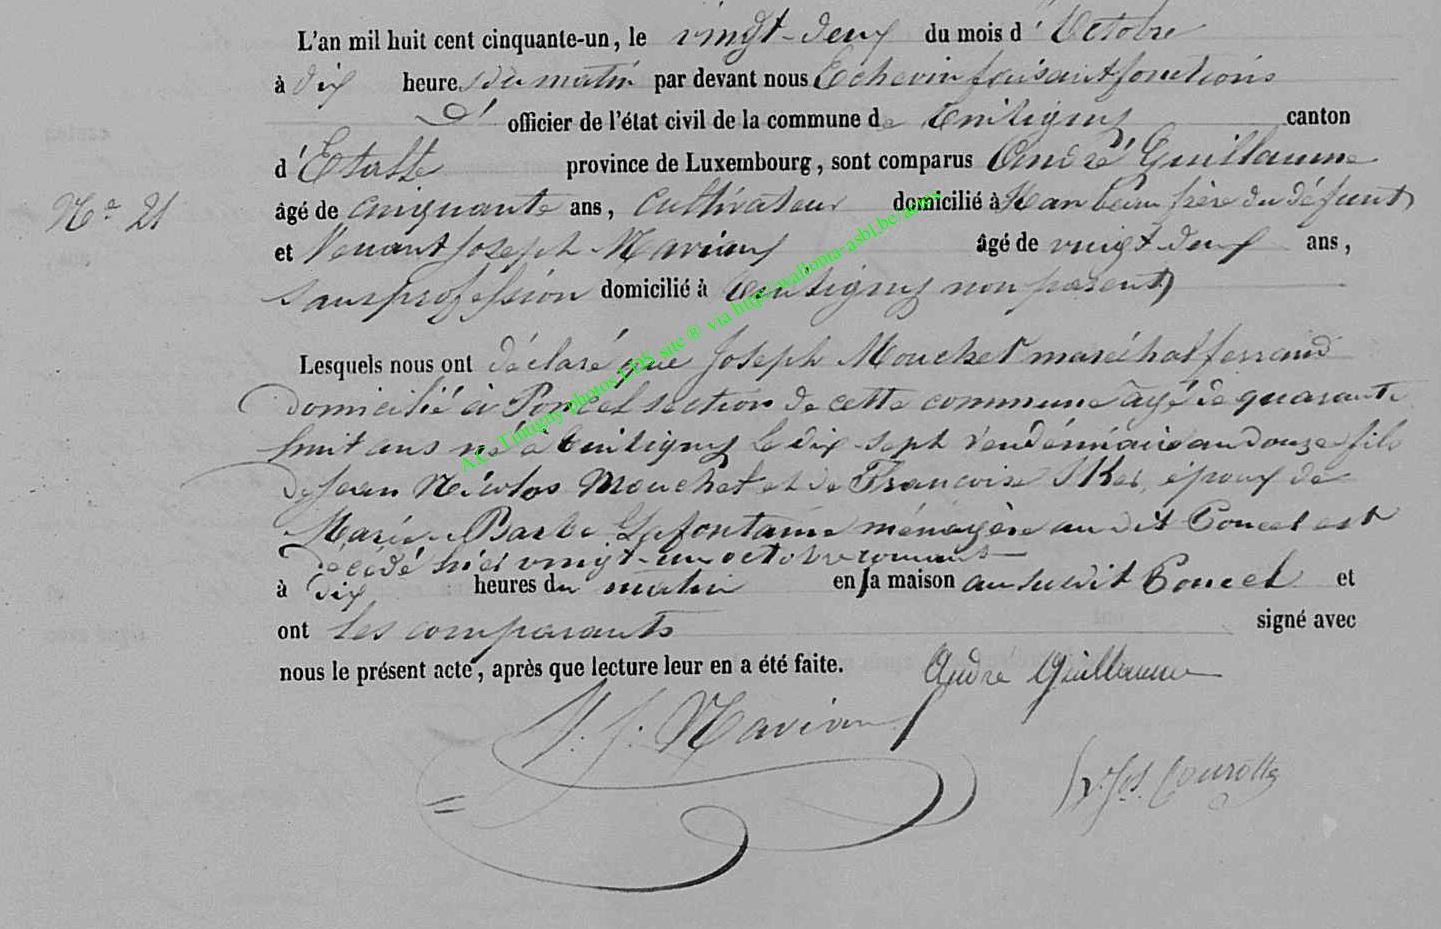 L'an mil huit cent cinquante-un, le vingt-deux du mois d'Octobre
à dix heures du matin par devant nous Echevin faisant fonctions
d' officier de l'état civil de la commune de Tintigny canton
d'Etalle province de Luxembourg, sont comparus André Guillaume
N° 21
âgé de cinquante ans, cultivateur domicilié à beau frère du défunt
et Venant Joseph Mavian âgé de vingt-deux ans,
sans profession domicilié à Tintigny non parent
Lesquels nous ont déclaré que Joseph Mouchet maréchal ferrand
domicilié à Poncel section de cette commune agé de quarante
huit ans né à Tintigny le dix sept vendémiaire an douze fils
de Jean Nicolas Mouchet et de Francoise époux de
Marie Barbe Lafontaine ménagère au dit Poncel est
décédé hier vingt-un octobre courant
à dix heures du matin en sa maison au susdit Poncel et
ont les comparants signé avec
nous le présent acte, après que lecture leur en a été faite.
André Guillaume
V. J. Mavian
A.C. Tintigny photos LDS site ® via http://wallonia-asbl.be/actes